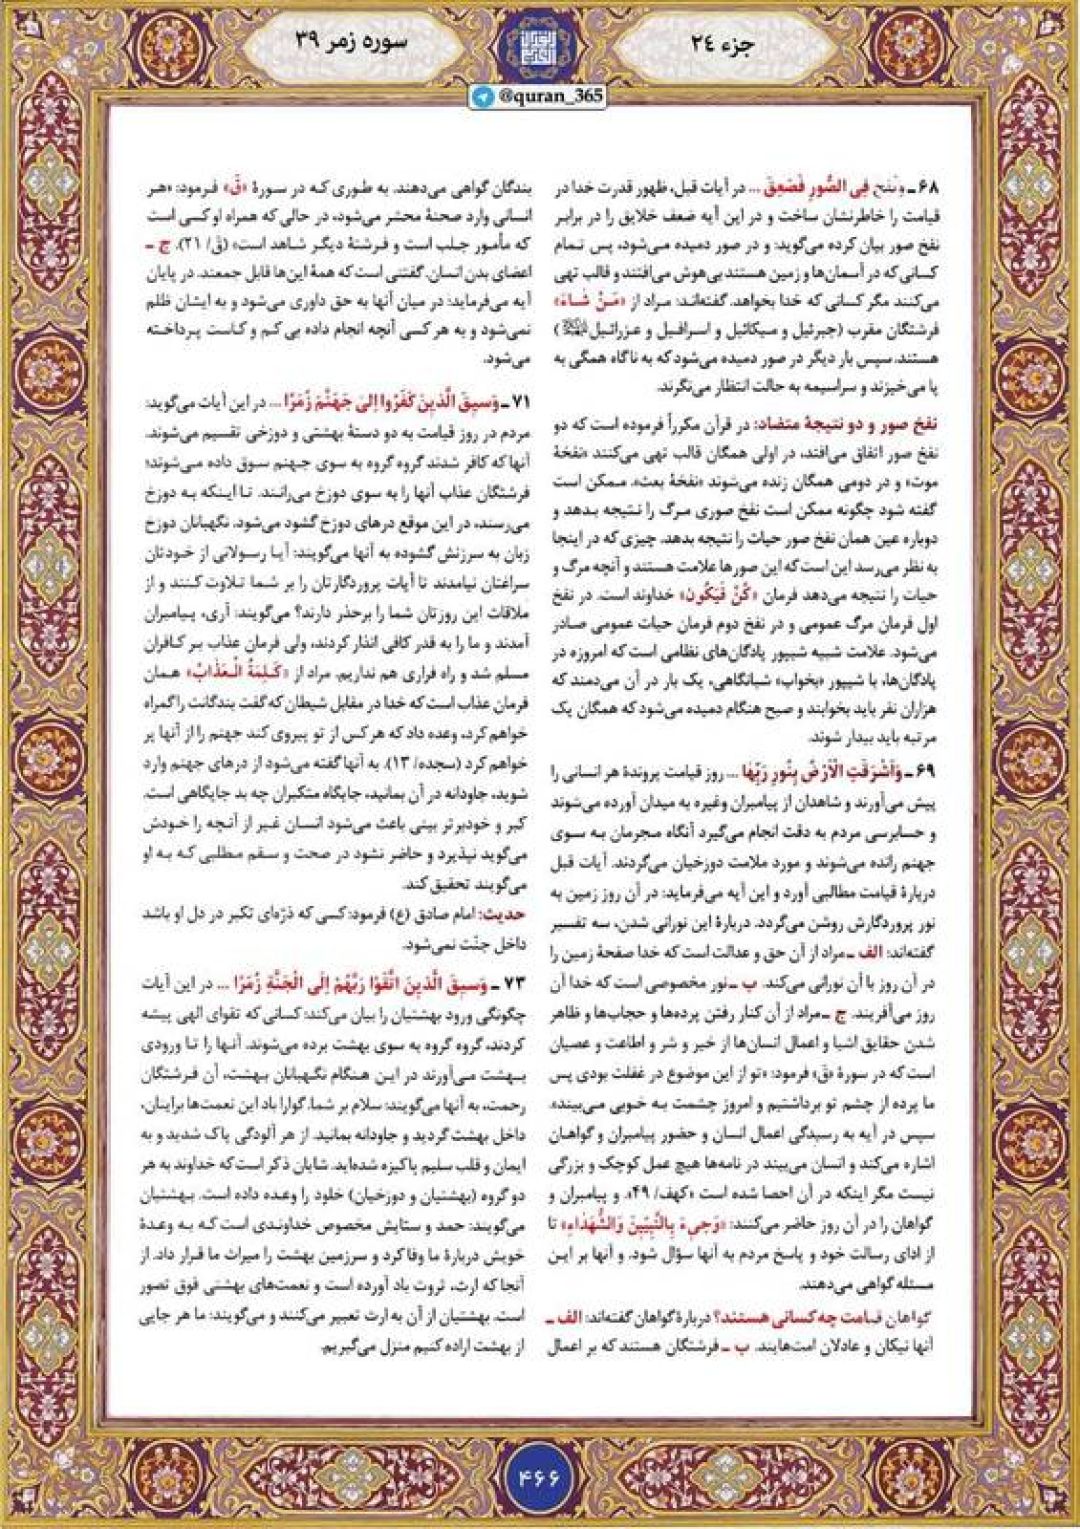 جزء ٢٤
سوره زمر ٣٩
@quran_365
۶۸ ـ وَنُفِخَ فِی الصُّورِ فَصَعِقَ ... در آیات قبل، ظهور قدرت خدا در
قیامت را خاطرنشان ساخت و در این آیه ضعف خلایق را در برابر
نفخ صور بیان کرده می‌گوید: و در صور دمیده می‌شود، پس تمام
کسانی که در آسمان‌ها و زمین هستند بی‌هوش می‌افتند و قالب تهی
می‌کنند مگر کسانی که خدا بخواهد. گفته‌اند: مراد از «مَنْ شاءَ»
فرشتگان مقرب (جبرئیل و میکائیل و اسرافیل و عزرائیل)
هستند. سپس بار دیگر در صور دمیده می‌شود که به ناگاه همگی به
پا می‌خیزند و سراسیمه به حالت انتظار می‌نگرند.
نفخ صور و دو نتیجهٔ متضاد: در قرآن مکرراً فرموده است که دو
نفخ صور اتفاق می‌افتد، در اولی همگان قالب تهی می‌کنند «نفخهٔ
موت» و در دومی همگان زنده می‌شوند «نفخهٔ بعث». ممکن است
گفته شود چگونه ممکن است نفخ صوری مرگ را نتیجه بدهد و
دوباره عین همان نفخ صور حیات را نتیجه بدهد. چیزی که در اینجا
به نظر می‌رسد این است که این صورها علامت هستند و آنچه مرگ و
حیات را نتیجه می‌دهد فرمان «کُنْ فَیَکُون» خداوند است. در نفخ
اول فرمان مرگ عمومی و در نفخ دوم فرمان حیات عمومی صادر
می‌شود. علامت شبیه شیپور پادگان‌های نظامی است که امروزه در
پادگان‌ها، با شیپور «بخواب» شبانگاهی، یک بار در آن می‌دمند که
هزاران نفر باید بخوابند و صبح هنگام دمیده می‌شود که همگان یک
مرتبه باید بیدار شوند.
۶۹ ـ وَاَشْرَقَتِ الْاَرْضُ بِنُورِ رَبِّهَا ... روز قیامت پروندهٔ هر انسانی را
پیش می‌آورند و شاهدان از پیامبران وغیره به میدان آورده می‌شوند
و حسابرسی مردم به دقت انجام می‌گیرد آنگاه مجرمان به سوی
جهنم رانده می‌شوند و مورد ملامت دوزخیان می‌گردند. آیات قبل
دربارهٔ قیامت مطالبی آورد و این آیه می‌فرماید: در آن روز زمین به
نور پروردگارش روشن می‌گردد. دربارهٔ این نورانی شدن، سه تفسیر
گفته‌اند: الف ـ مراد از آن حق و عدالت است که خدا صفحهٔ زمین را
در آن روز با آن نورانی می‌کند. ب ـ نور مخصوصی است که خدا آن
روز می‌آفریند. ج ـ مراد از آن کنار رفتن پرده‌ها و حجاب‌ها و ظاهر
شدن حقایق اشیا و اعمال انسان‌ها از خیر و شر و اطاعت و عصیان
است که در سورهٔ «ق» فرمود: «تو از این موضوع در غفلت بودی پس
ما پرده از چشم تو برداشتیم و امروز چشمت به خوبی می‌بیند».
سپس در آیه به رسیدگی اعمال انسان و حضور پیامبران و گواهان
اشاره می‌کند و انسان می‌بیند در نامه‌ها هیچ عمل کوچک و بزرگی
نیست مگر اینکه در آن احصا شده است «کهف/ ۴۹». و پیامبران و
گواهان را در آن روز حاضر می‌کنند: «وَجیءَ بِالنَّبِیّینَ وَالشُّهَداءِ» تا
از ادای رسالت خود و پاسخ مردم به آنها سؤال شود. و آنها بر این
مسئله گواهی می‌دهند.
گواهان قیامت چه کسانی هستند؟ دربارهٔ گواهان گفته‌اند: الف ـ
آنها نیکان و عادلان امت‌هایند. ب ـ فرشتگان هستند که بر اعمال
بندگان گواهی می‌دهند. به طوری که در سورهٔ «ق» فرمود: «هر
انسانی وارد صحنهٔ محشر می‌شود، در حالی که همراه او کسی است
که مأمور جلب است و فرشتهٔ دیگر شاهد است» (ق/ ۲۱). ج ـ
اعضای بدن انسان. گفتنی است که همهٔ این‌ها قابل جمعند. در پایان
آیه می‌فرماید: در میان آنها به حق داوری می‌شود و به ایشان ظلم
نمی‌شود و به هر کسی آنچه انجام داده بی کم و کاست پرداخته
می‌شود.
۷۱ ـ وَسیقَ الَّذینَ کَفَرُوا اِلیٰ جَهَنَّمَ زُمَرًا ... در این آیات می‌گوید:
مردم در روز قیامت به دو دستهٔ بهشتی و دوزخی تقسیم می‌شوند.
آنها که کافر شدند گروه گروه به سوی جهنم سوق داده می‌شوند؛
فرشتگان عذاب آنها را به سوی دوزخ می‌رانند. تا اینکه به دوزخ
می‌رسند، در این موقع درهای دوزخ گشود می‌شود. نگهبانان دوزخ
زبان به سرزنش گشوده به آنها می‌گویند: آیا رسولانی از خودتان
سراغتان نیامدند تا آیات پروردگارتان را بر شما تلاوت کنند و از
ملاقات این روزتان شما را برحذر دارند؟ می‌گویند: آری، پیامبران
آمدند و ما را به قدر کافی انذار کردند، ولی فرمان عذاب بر کافران
مسلم شد و راه فراری هم نداریم. مراد از «کَلِمَةُ الْعَذَابِ» همان
فرمان عذاب است که خدا در مقابل شیطان که گفت بندگانت را گمراه
خواهم کرد، وعده داد که هر کس از تو پیروی کند جهنم را از آنها پر
خواهم کرد (سجده/ ۱۳). به آنها گفته می‌شود از درهای جهنم وارد
شوید، جاودانه در آن بمانید، جایگاه متکبران چه بد جایگاهی است.
کبر و خودبرتر بینی باعث می‌شود انسان غیر از آنچه را خودش
می‌گوید نپذیرد و حاضر نشود در صحت و سقم مطلبی که به او
می‌گویند تحقیق کند.
حدیث: امام صادق (ع) فرمود: کسی که ذرّه‌ای تکبر در دل او باشد
داخل جنّت نمی‌شود.
۷۳ ـ وَسیقَ الَّذینَ اتَّقَوْا رَبَّهُمْ اِلَی الْجَنَّةِ زُمَرًا ... در این آیات
چگونگی ورود بهشتیان را بیان می‌کند: کسانی که تقوای الهی پیشه
کردند، گروه گروه به سوی بهشت برده می‌شوند. آنها را تا ورودی
بهشت می‌آورند در این هنگام نگهبانان بهشت، آن فرشتگان
رحمت، به آنها می‌گویند: سلام بر شما. گوارا باد این نعمت‌ها برایتان،
داخل بهشت گردید و جاودانه بمانید. از هر آلودگی پاک شدید و به
ایمان و قلب سلیم پاکیزه شده‌اید. شایان ذکر است که خداوند به هر
دو گروه (بهشتیان و دوزخیان) خلود را وعده داده است. بهشتیان
می‌گویند: حمد و ستایش مخصوص خداوندی است که به وعدهٔ
خویش دربارهٔ ما وفا کرد و سرزمین بهشت را میراث ما قرار داد. از
آنجا که ارث، ثروت باد آورده است و نعمت‌های بهشتی فوق تصور
است. بهشتیان از آن به ارث تعبیر می‌کنند و می‌گویند: ما هر جایی
از بهشت اراده کنیم منزل می‌گیریم.
۴۶۶